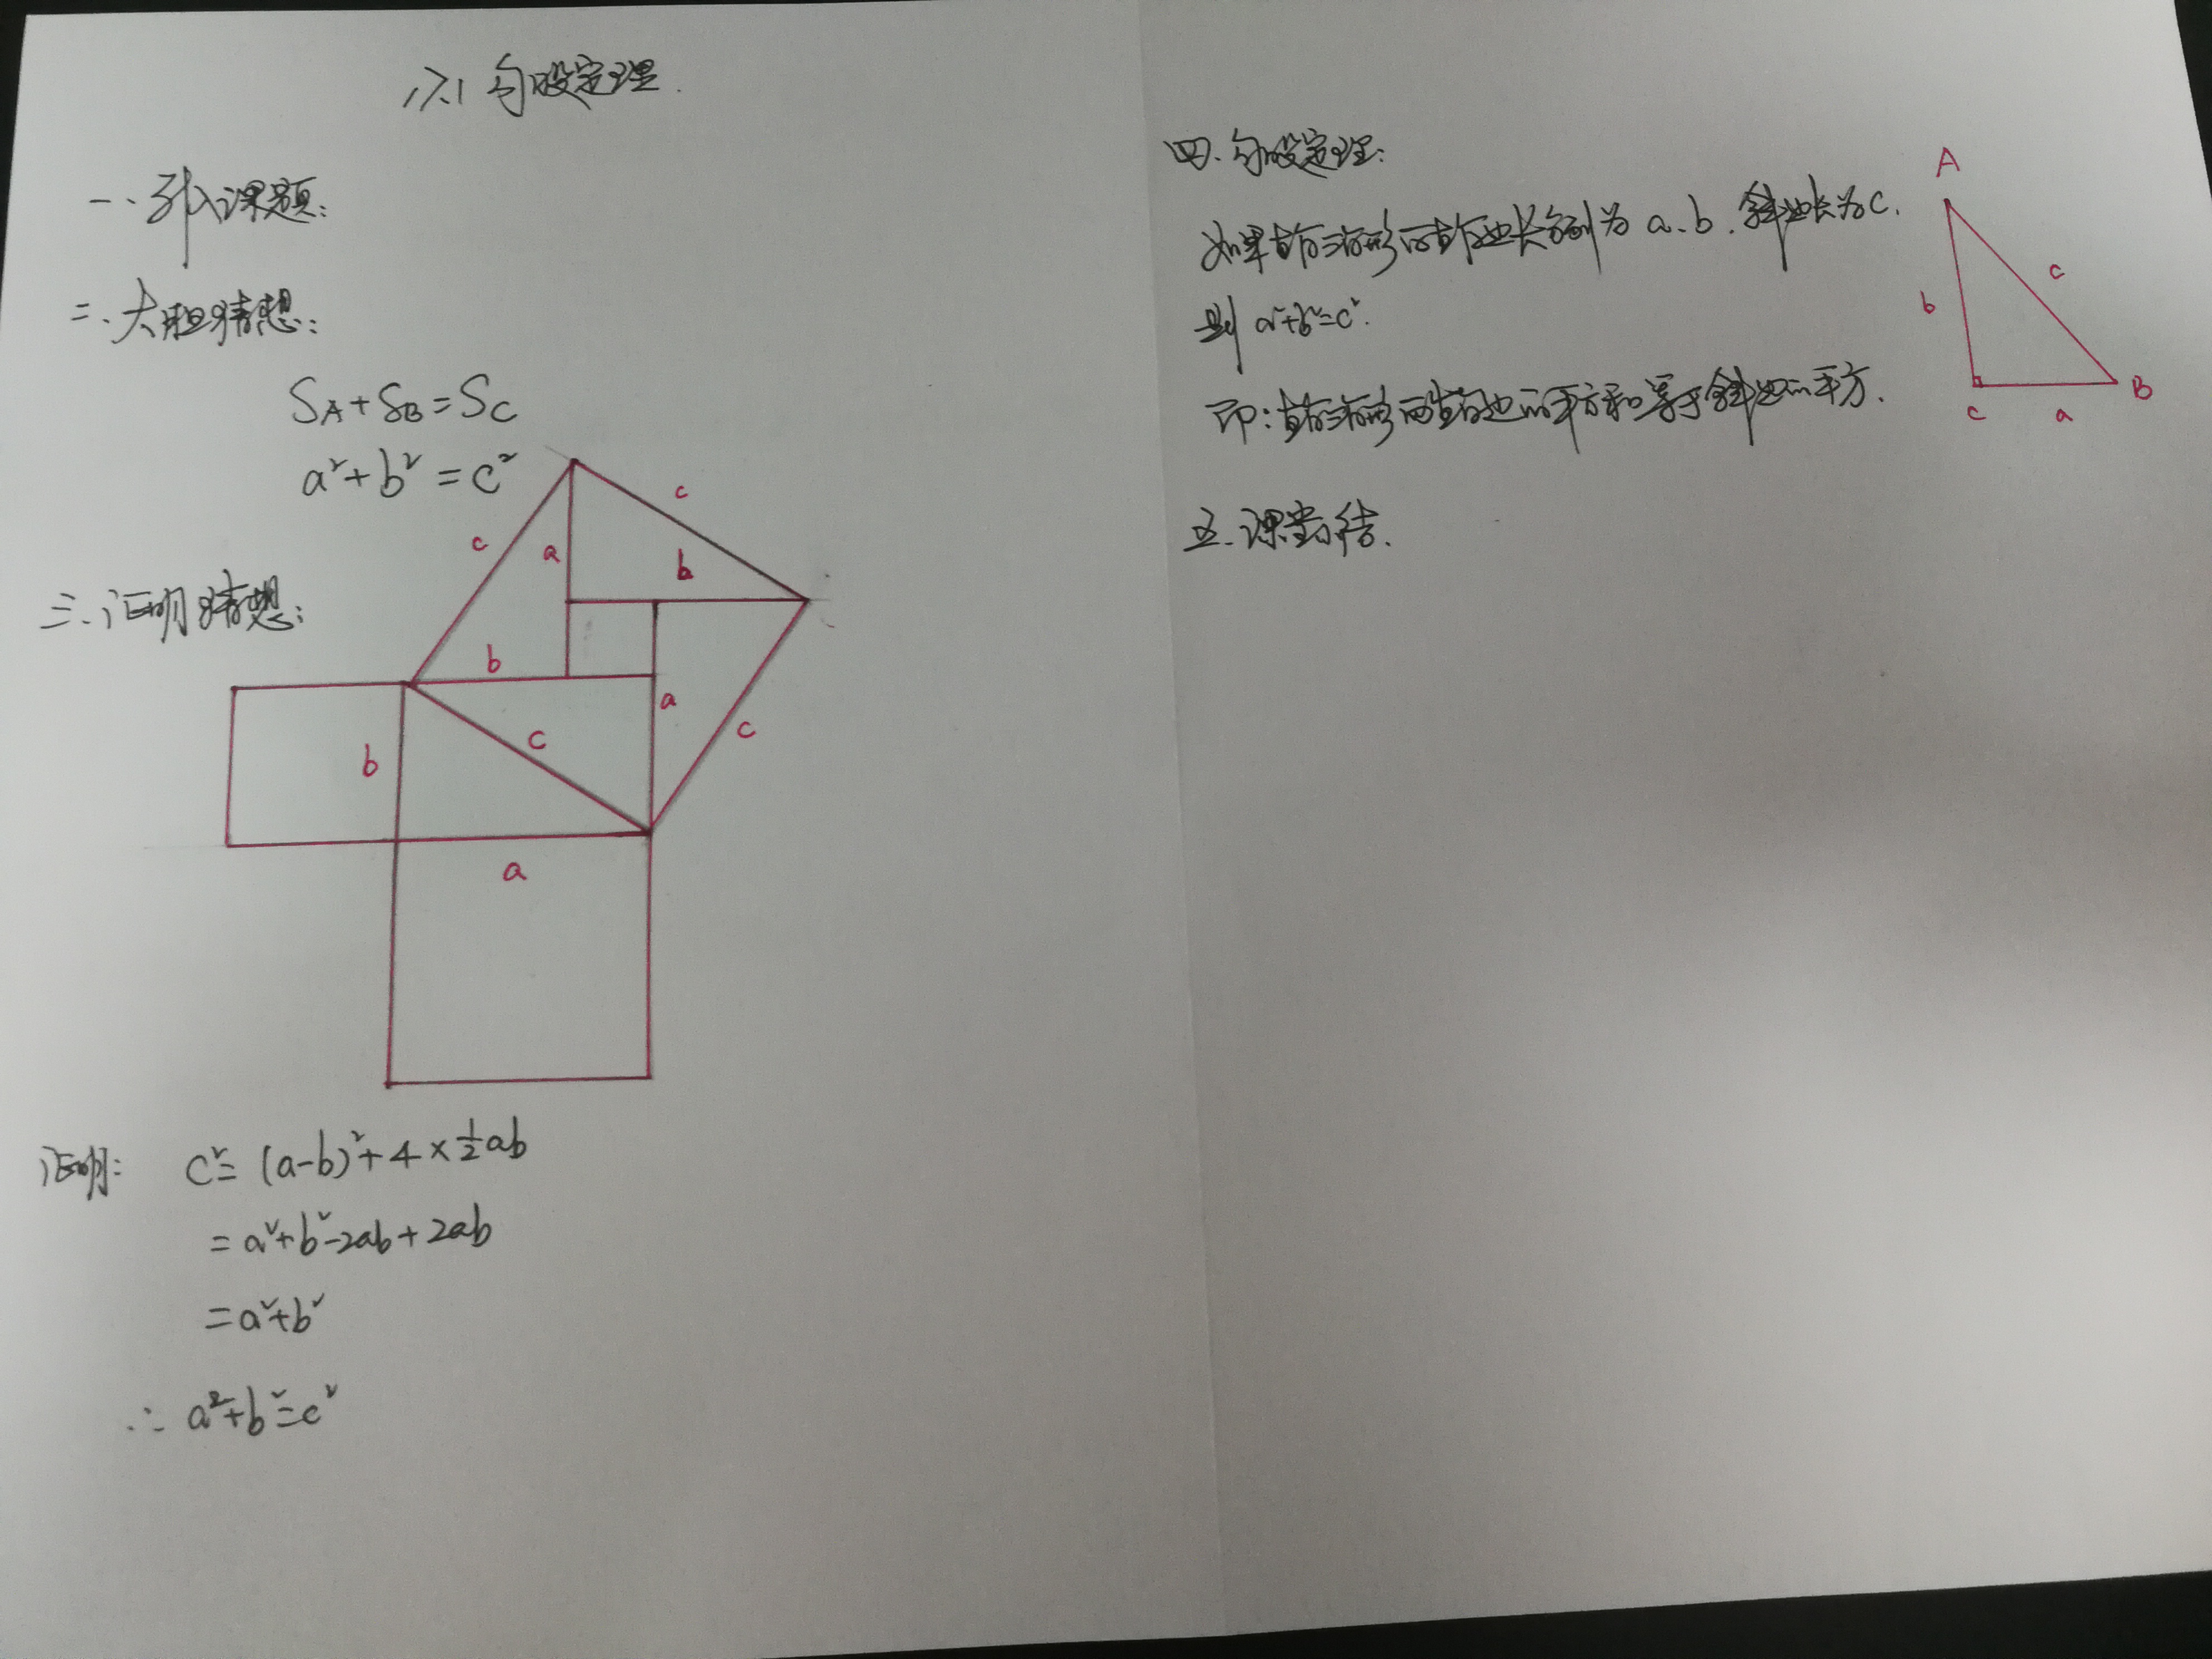 17.1 勾股定理.
一、引入课题:
二、大胆猜想:
S_A+S_B=S_C
a²+b²=c²
三、证明猜想:
c
c
a
b
b
a
c
c
b
a
证明: c²=(a-b)²+4×½ab
=a²+b²-2ab+2ab
=a²+b²
∴ a²+b²=c²
四、勾股定理:
如果直角三角形两直角边长分别为 a、b,斜边长为c.
则 a²+b²=c².
即:直角三角形两直角边的平方和等于斜边的平方.
A
c
b
B
C
a
五、课堂小结.